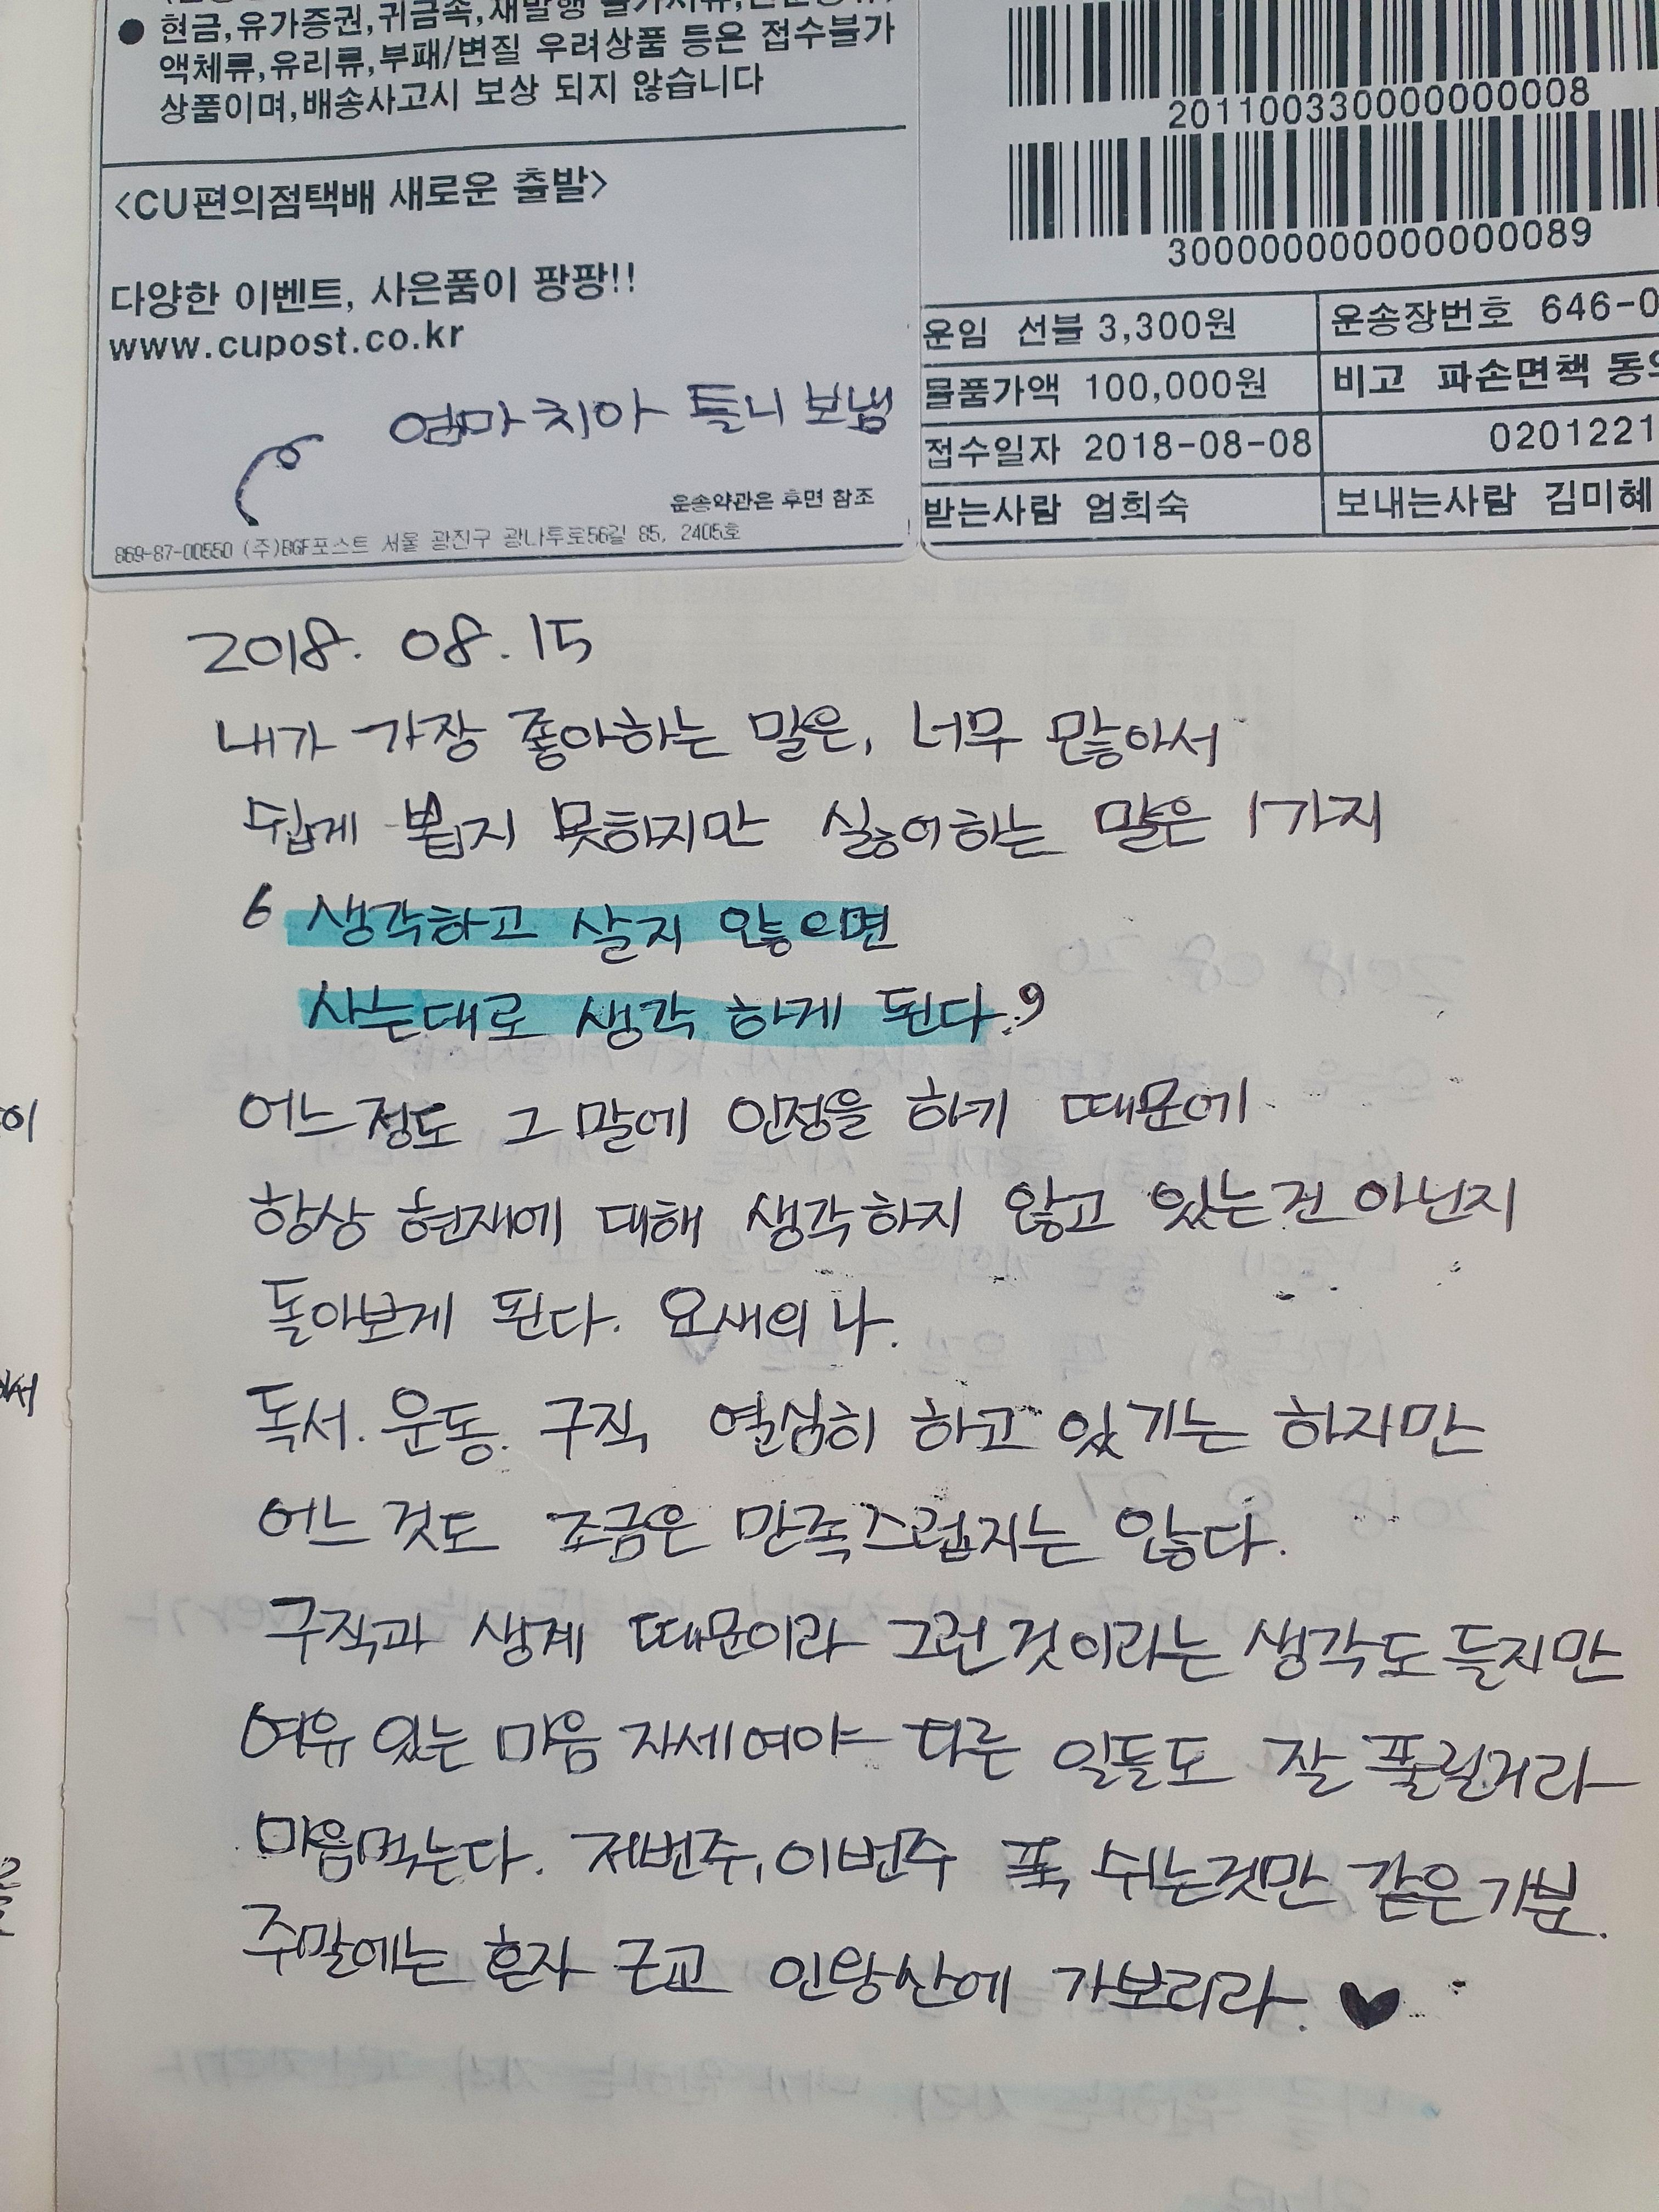 현금,유가증권,귀금속,재발행
액체류,유리류,부패/변질 우려상품 등은 접수불가
상품이며,배송사고시 보상 되지 않습니다
<CU편의점택배 새로운 출발>
다양한 이벤트, 사은품이 팡팡!!
www.cupost.co.kr
엄마 치아 틀니 보냄
운송약관은 후면 참조
869-87-00550 (주)BGF포스트 서울 광진구 광나루로56길 85, 2405호
201100330000000008
300000000000000089
운임 선불 3,300원 운송장번호 646-0
물품가액 100,000원 비고 파손면책 동의
접수일자 2018-08-08 0201221
받는사람 엄희숙 보내는사람 김미혜
2018. 08. 15
내가 가장 좋아하는 말은, 너무 많아서
쉽게 뽑지 못하지만 싫어하는 말은 1가지
6 생각하고 살지 않으면
사는대로 생각 하게 된다.9
어느정도 그 말에 인정을 하기 때문에
항상 현재에 대해 생각하지 않고 있는건 아닌지
돌아보게 된다. 요새의 나.
독서. 운동. 구직 열심히 하고 있기는 하지만
어느 것도 조금은 만족스럽지는 않다.
구직과 생계 때문이라 그런것이라는 생각도 들지만
여유 있는 마음 자세여야 다른 일들도 잘 풀릴거라
마음먹는다. 저번주, 이번주 푹 쉬는것만 같은 기분.
주말에는 혼자 근교 인왕산에 가보리라. ♥